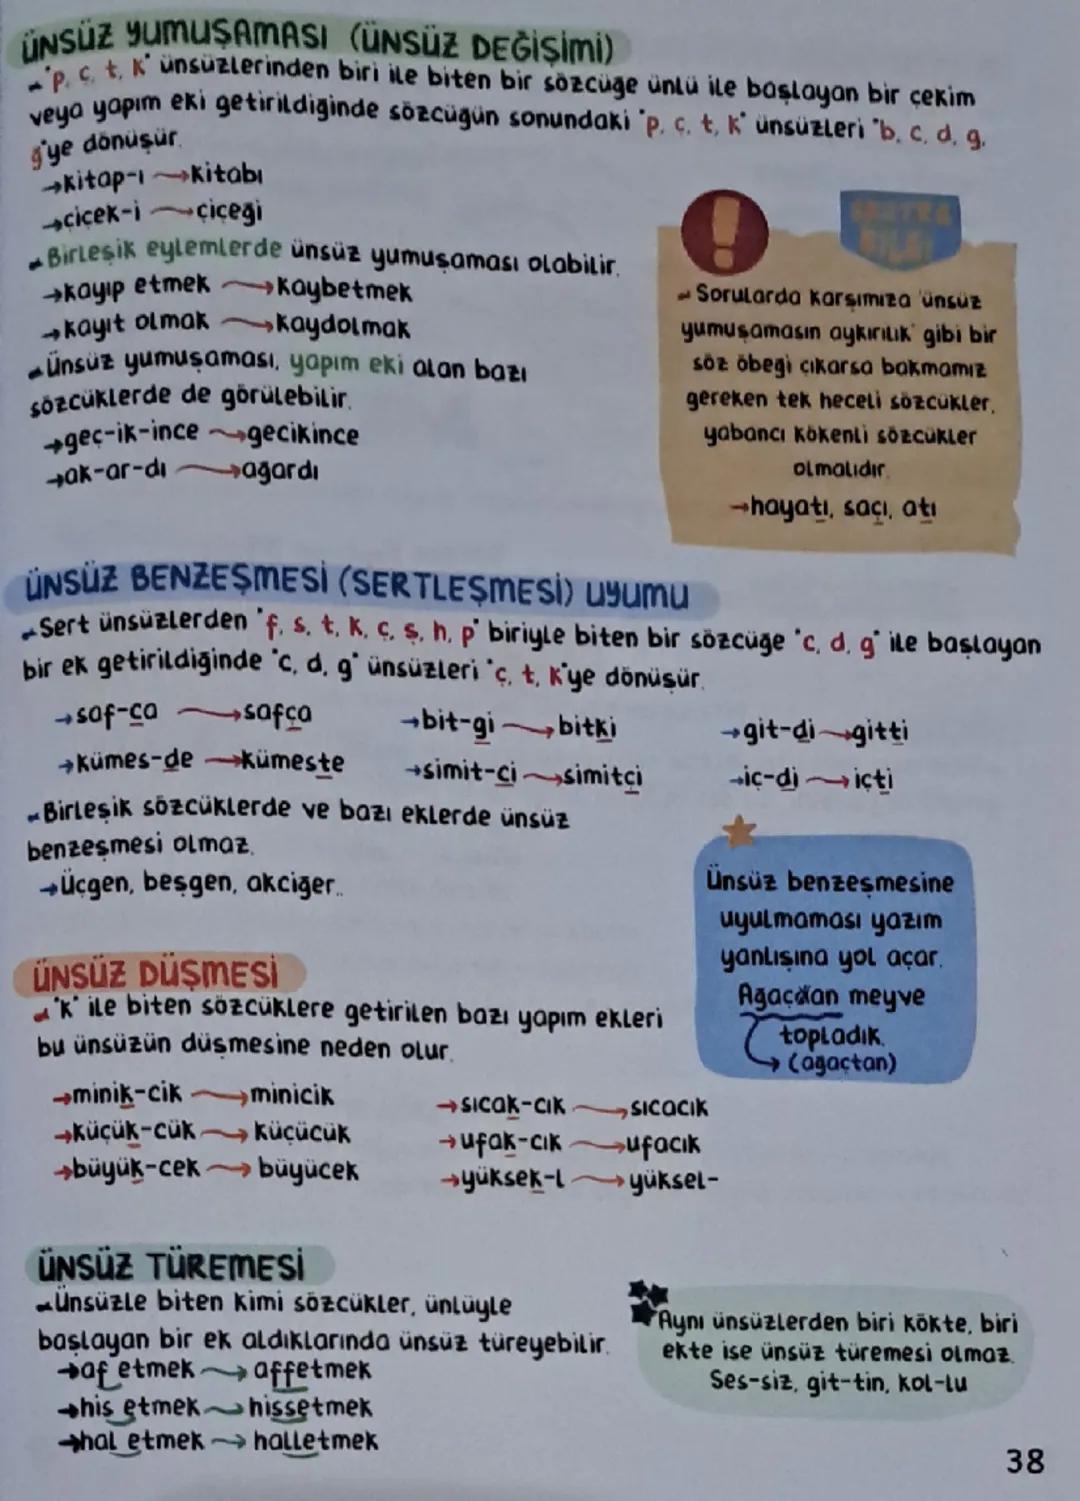 ÜNSÜZ YUMUŞAMASI (ÜNSÜZ DEĞİŞİMİ)
"p, ç, t, k" ünsüzlerinden biri ile biten bir sözcüğe ünlü ile başlayan bir çekim
veya yapım eki getirildiğinde sözcüğün sonundaki "p, ç, t, k" ünsüzleri "b, c, d, g,
ğ"ye dönüşür.
→kitap-ı → kitabı
→çiçek-i → çiçeği
Birleşik eylemlerde ünsüz yumuşaması olabilir.
→kayıp etmek → kaybetmek
→kayıt olmak → kaydolmak
Ünsüz yumuşaması, yapım eki alan bazı
sözcüklerde de görülebilir.
→geç-ik-ince → gecikince
→ak-ar-dı → ağardı
EKSTRA
BİLGİ
Sorularda karşımıza 'ünsüz
yumuşamasın aykırılık' gibi bir
söz öbeği çıkarsa bakmamız
gereken tek heceli sözcükler,
yabancı kökenli sözcükler
olmalıdır.
→hayatı, saçı, atı
ÜNSÜZ BENZEŞMESİ (SERTLEŞMESİ) UYUMU
Sert ünsüzlerden "f, s, t, k, ç, ş, h, p" biriyle biten bir sözcüğe "c, d, g" ile başlayan
bir ek getirildiğinde "c, d, g" ünsüzleri "ç, t, k"ye dönüşür.
→saf-ca → safça →bit-gi → bitki →git-di → gitti
→kümes-de → kümeste →simit-ci → simitçi →iç-di → içti
Birleşik sözcüklerde ve bazı eklerde ünsüz
benzeşmesi olmaz.
→Üçgen, beşgen, akciğer..
Ünsüz benzeşmesine
uyulmaması yazım
yanlışına yol açar.
Ağaçdan meyve
topladık.
→ (ağaçtan)
ÜNSÜZ DÜŞMESİ
"k" ile biten sözcüklere getirilen bazı yapım ekleri
bu ünsüzün düşmesine neden olur.
→minik-cik → minicik →sıcak-cık → sıcacık
→küçük-cük → küçücük →ufak-cık → ufacık
→büyük-cek → büyücek →yüksek-l → yüksel-
ÜNSÜZ TÜREMESİ
Ünsüzle biten kimi sözcükler, ünlüyle
başlayan bir ek aldıklarında ünsüz türeyebilir.
→af etmek → affetmek
→his etmek → hissetmek
→hal etmek → halletmek
Aynı ünsüzlerden biri kökte, biri
ekte ise ünsüz türemesi olmaz.
Ses-siz, git-tin, kol-lu
38